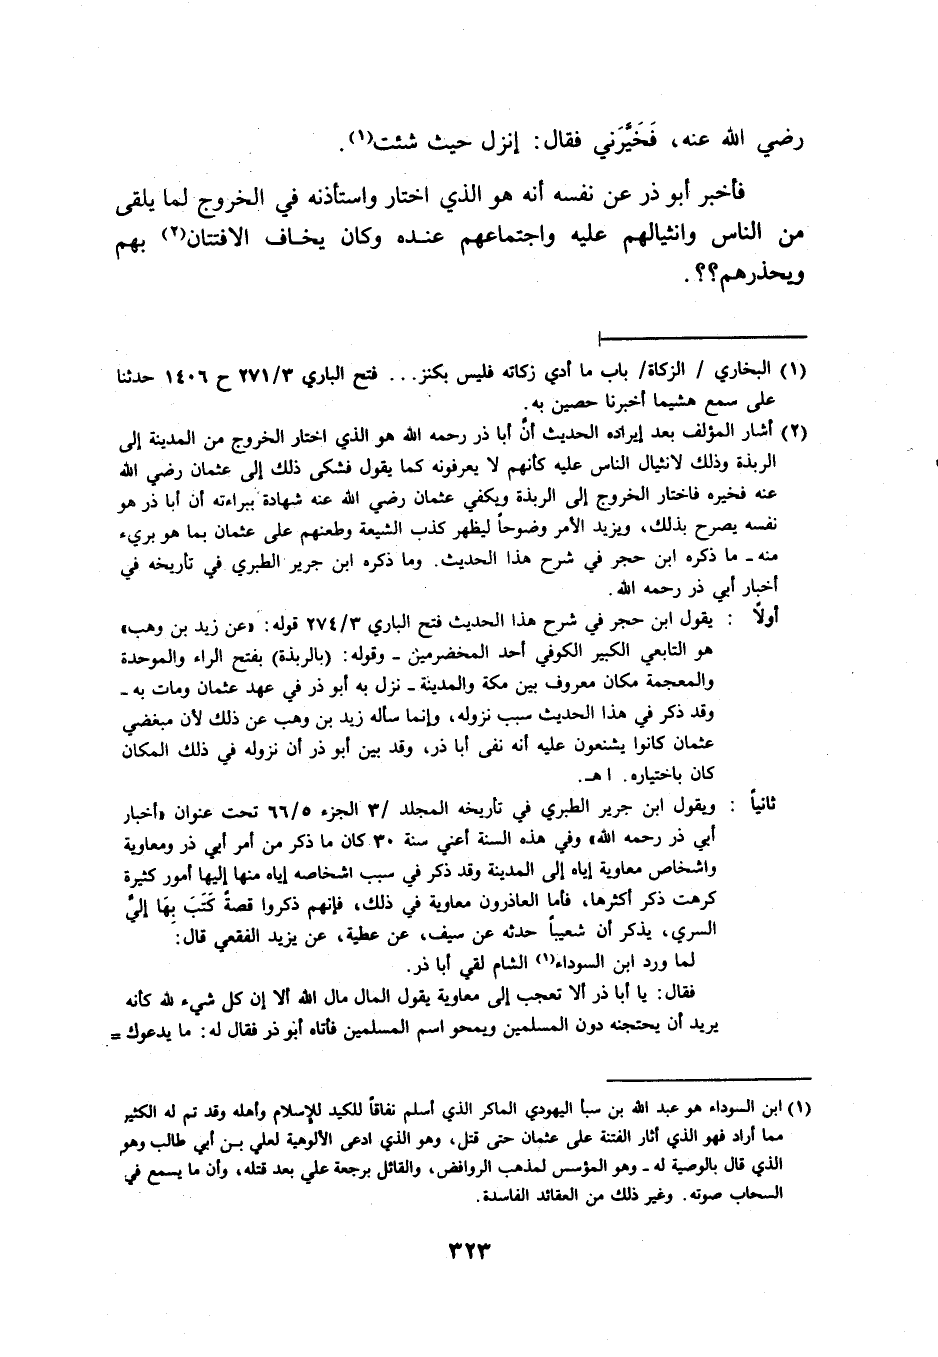 رضي الله عنه، فَخَيَّرَني فقال: إنزل حيث شئت(١).
فأخبر أبو ذر عن نفسه أنه هو الذي اختار واستأذنه في الخروج لما يلقى
من الناس وانثيالهم عليه واجتماعهم عنده وكان يخاف الافتتان(٢) بهم
ويحذرهم؟؟.
(١) البخاري / الزكاة/ باب ما أدي زكاته فليس بكنز... فتح الباري ٢٧١/٣ ح ١٤٠٦ حدثنا
على سمع هشيما أخبرنا حصين به.
(٢) أشار المؤلف بعد إيراده الحديث أنَّ أبا ذر رحمه الله هو الذي اختار الخروج من المدينة إلى
الربذة وذلك لانثيال الناس عليه كأنهم لا يعرفونه كما يقول فشكى ذلك إلى عثمان رضي الله
عنه فخيره فاختار الخروج إلى الربذة ويكفي عثمان رضي الله عنه شهادة ببراءته أن أبا ذر هو
نفسه يصرح بذلك، ويزيد الأمر وضوحاً ليظهر كذب الشيعة وطعنهم على عثمان بما هو بريء
منه ـ ما ذكره ابن حجر في شرح هذا الحديث. وما ذكره ابن جرير الطبري في تأريخه في
أخبار أبي ذر رحمه الله.
أولاً : يقول ابن حجر في شرح هذا الحديث فتح الباري ٢٧٤/٣ قوله: «عن زيد بن وهب»
هو التابعي الكبير الكوفي أحد المخضرمين ـ وقوله: (بالربذة) بفتح الراء والموحدة
والمعجمة مكان معروف بين مكة والمدينة ـ نزل به أبو ذر في عهد عثمان ومات به ـ
وقد ذكر في هذا الحديث سبب نزوله، وإنما سأله زيد بن وهب عن ذلك لأن مبغضي
عثمان كانوا يشنعون عليه أنه نفى أبا ذر، وقد بين أبو ذر أن نزوله في ذلك المكان
كان باختياره. ا هـ.
ثانياً : ويقول ابن جرير الطبري في تأريخه المجلد /٣ الجزء ٦٦/٥ تحت عنوان «أخبار
أبي ذر رحمه الله» وفي هذه السنة أعني سنة ٣٠ كان ما ذكر من أمر أبي ذر ومعاوية
واشخاص معاوية إياه إلى المدينة وقد ذكر في سبب اشخاصه إياه منها إليها أمور كثيرة
كرهت ذكر أكثرها، فأما العاذرون معاوية في ذلك، فإنهم ذكروا قصةً كَتَبَ بِهَا إليَّ
السري، يذكر أن شعيباً حدثه عن سيف، عن عطية، عن يزيد الفقعي قال:
لما ورد ابن السوداء(١) الشام لقي أبا ذر.
فقال: يا أبا ذر ألا تعجب إلى معاوية يقول المال مال الله ألا إن كل شيء لله كأنه
يريد أن يحتجنه دون المسلمين ويمحو اسم المسلمين فأتاه أبو ذر فقال له: ما يدعوك =
(١) ابن السوداء هو عبد الله بن سبأ اليهودي الماكر الذي أسلم نفاقاً للكيد للإسلام وأهله وقد تم له الكثير
مما أراد فهو الذي أثار الفتنة على عثمان حتى قتل، وهو الذي ادعى الألوهية لعلي بن أبي طالب وهو
الذي قال بالوصية له ـ وهو المؤسس لمذهب الروافض، والقائل برجعة علي بعد قتله، وأن ما يسمع في
السحاب صوته. وغير ذلك من العقائد الفاسدة.
٣٢٣